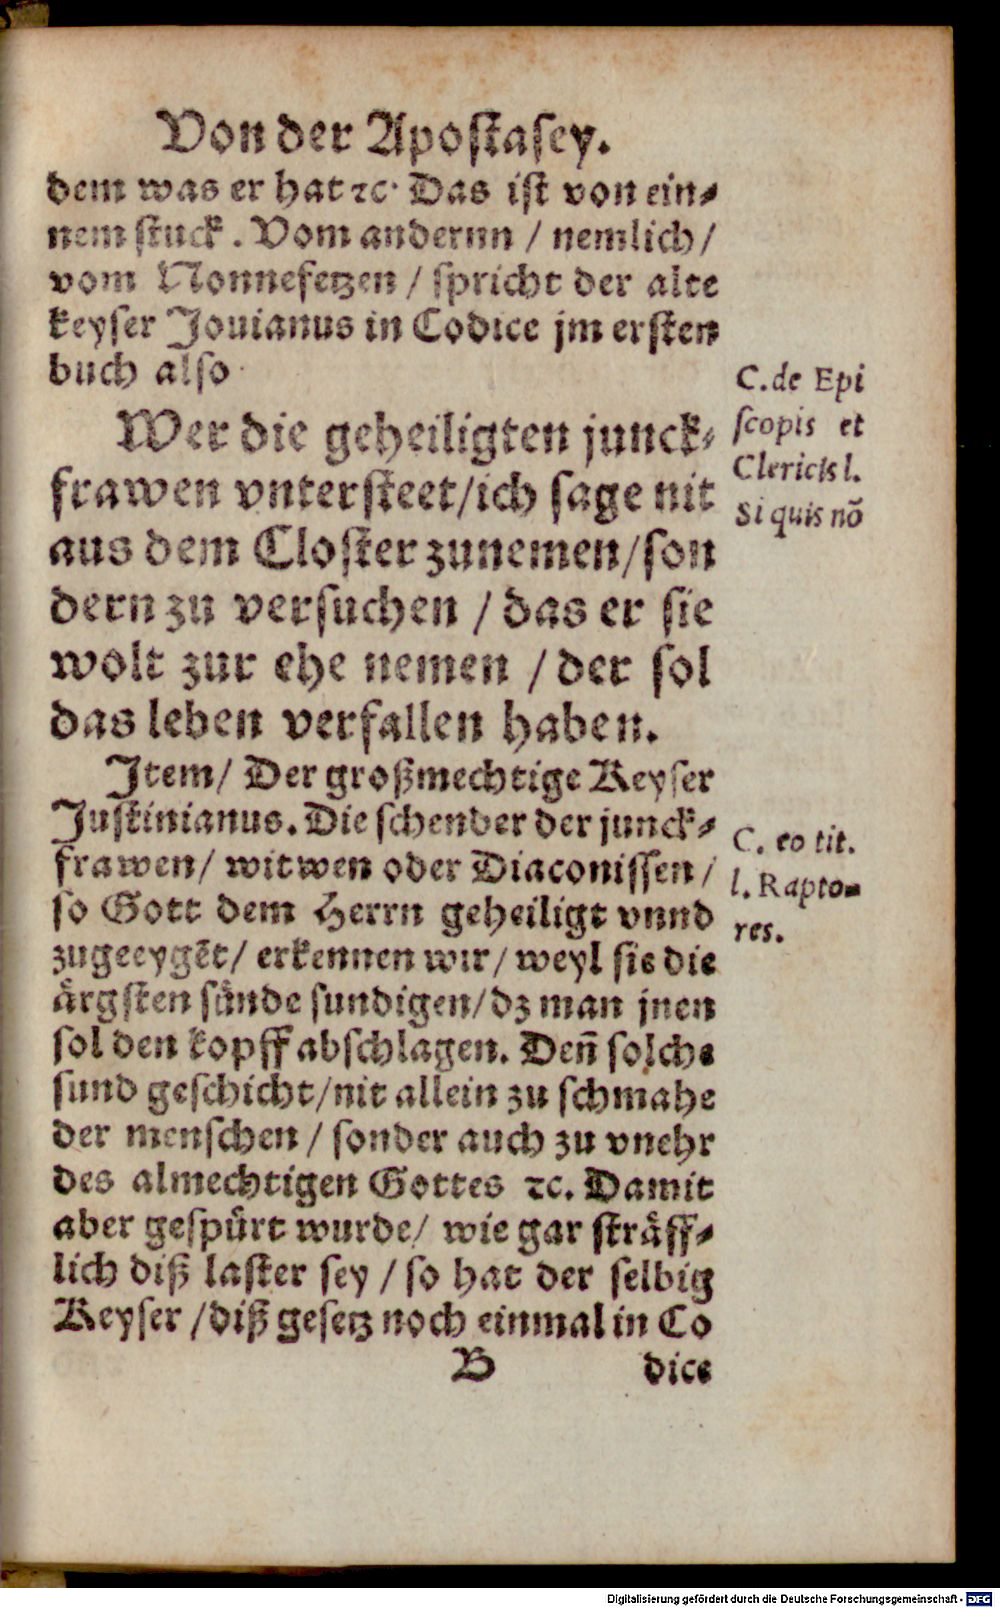 Von der Apostasey.
dem was er hat ꝛc. Das ist von ein⸗
nem stuck. Vom andernn / nemlich /
vom Nonnefetzen / spricht der alte
keyser Jouianus in Codice jm ersten
buch also
C. de Epi
scopis et
Clericis l.
Si quis nõ
Wer die geheiligten junck⸗
frawen vntersteet/ich sage nit
aus dem Closter zunemen/son
dern zu versuchen / das er sie
wolt zur ehe nemen / der sol
das leben verfallen haben.
Jtem/ Der großmechtige Keyser
Justinianus. Die schender der junck⸗
frawen/ witwen oder Diaconissen /
so Gott dem Herrn geheiligt vnnd
zugeeygẽt/ erkennen wir/ weyl sie die
ärgsten sünde sundigen/dz man jnen
sol den kopff abschlagen. Deñ solche
sund geschicht/nit allein zu schmahe
der menschen / sonder auch zu vnehr
des almechtigen Gottes ꝛc. Damit
aber gespürt wurde/ wie gar sträff⸗
lich diß laster sey / so hat der selbig
Keyser /diß gesetz noch einmal in Co
C. eo tit.
l. Rapto⸗
res.
B dice
Digitalisierung gefördert durch die Deutsche Forschungsgemeinschaft - DFG